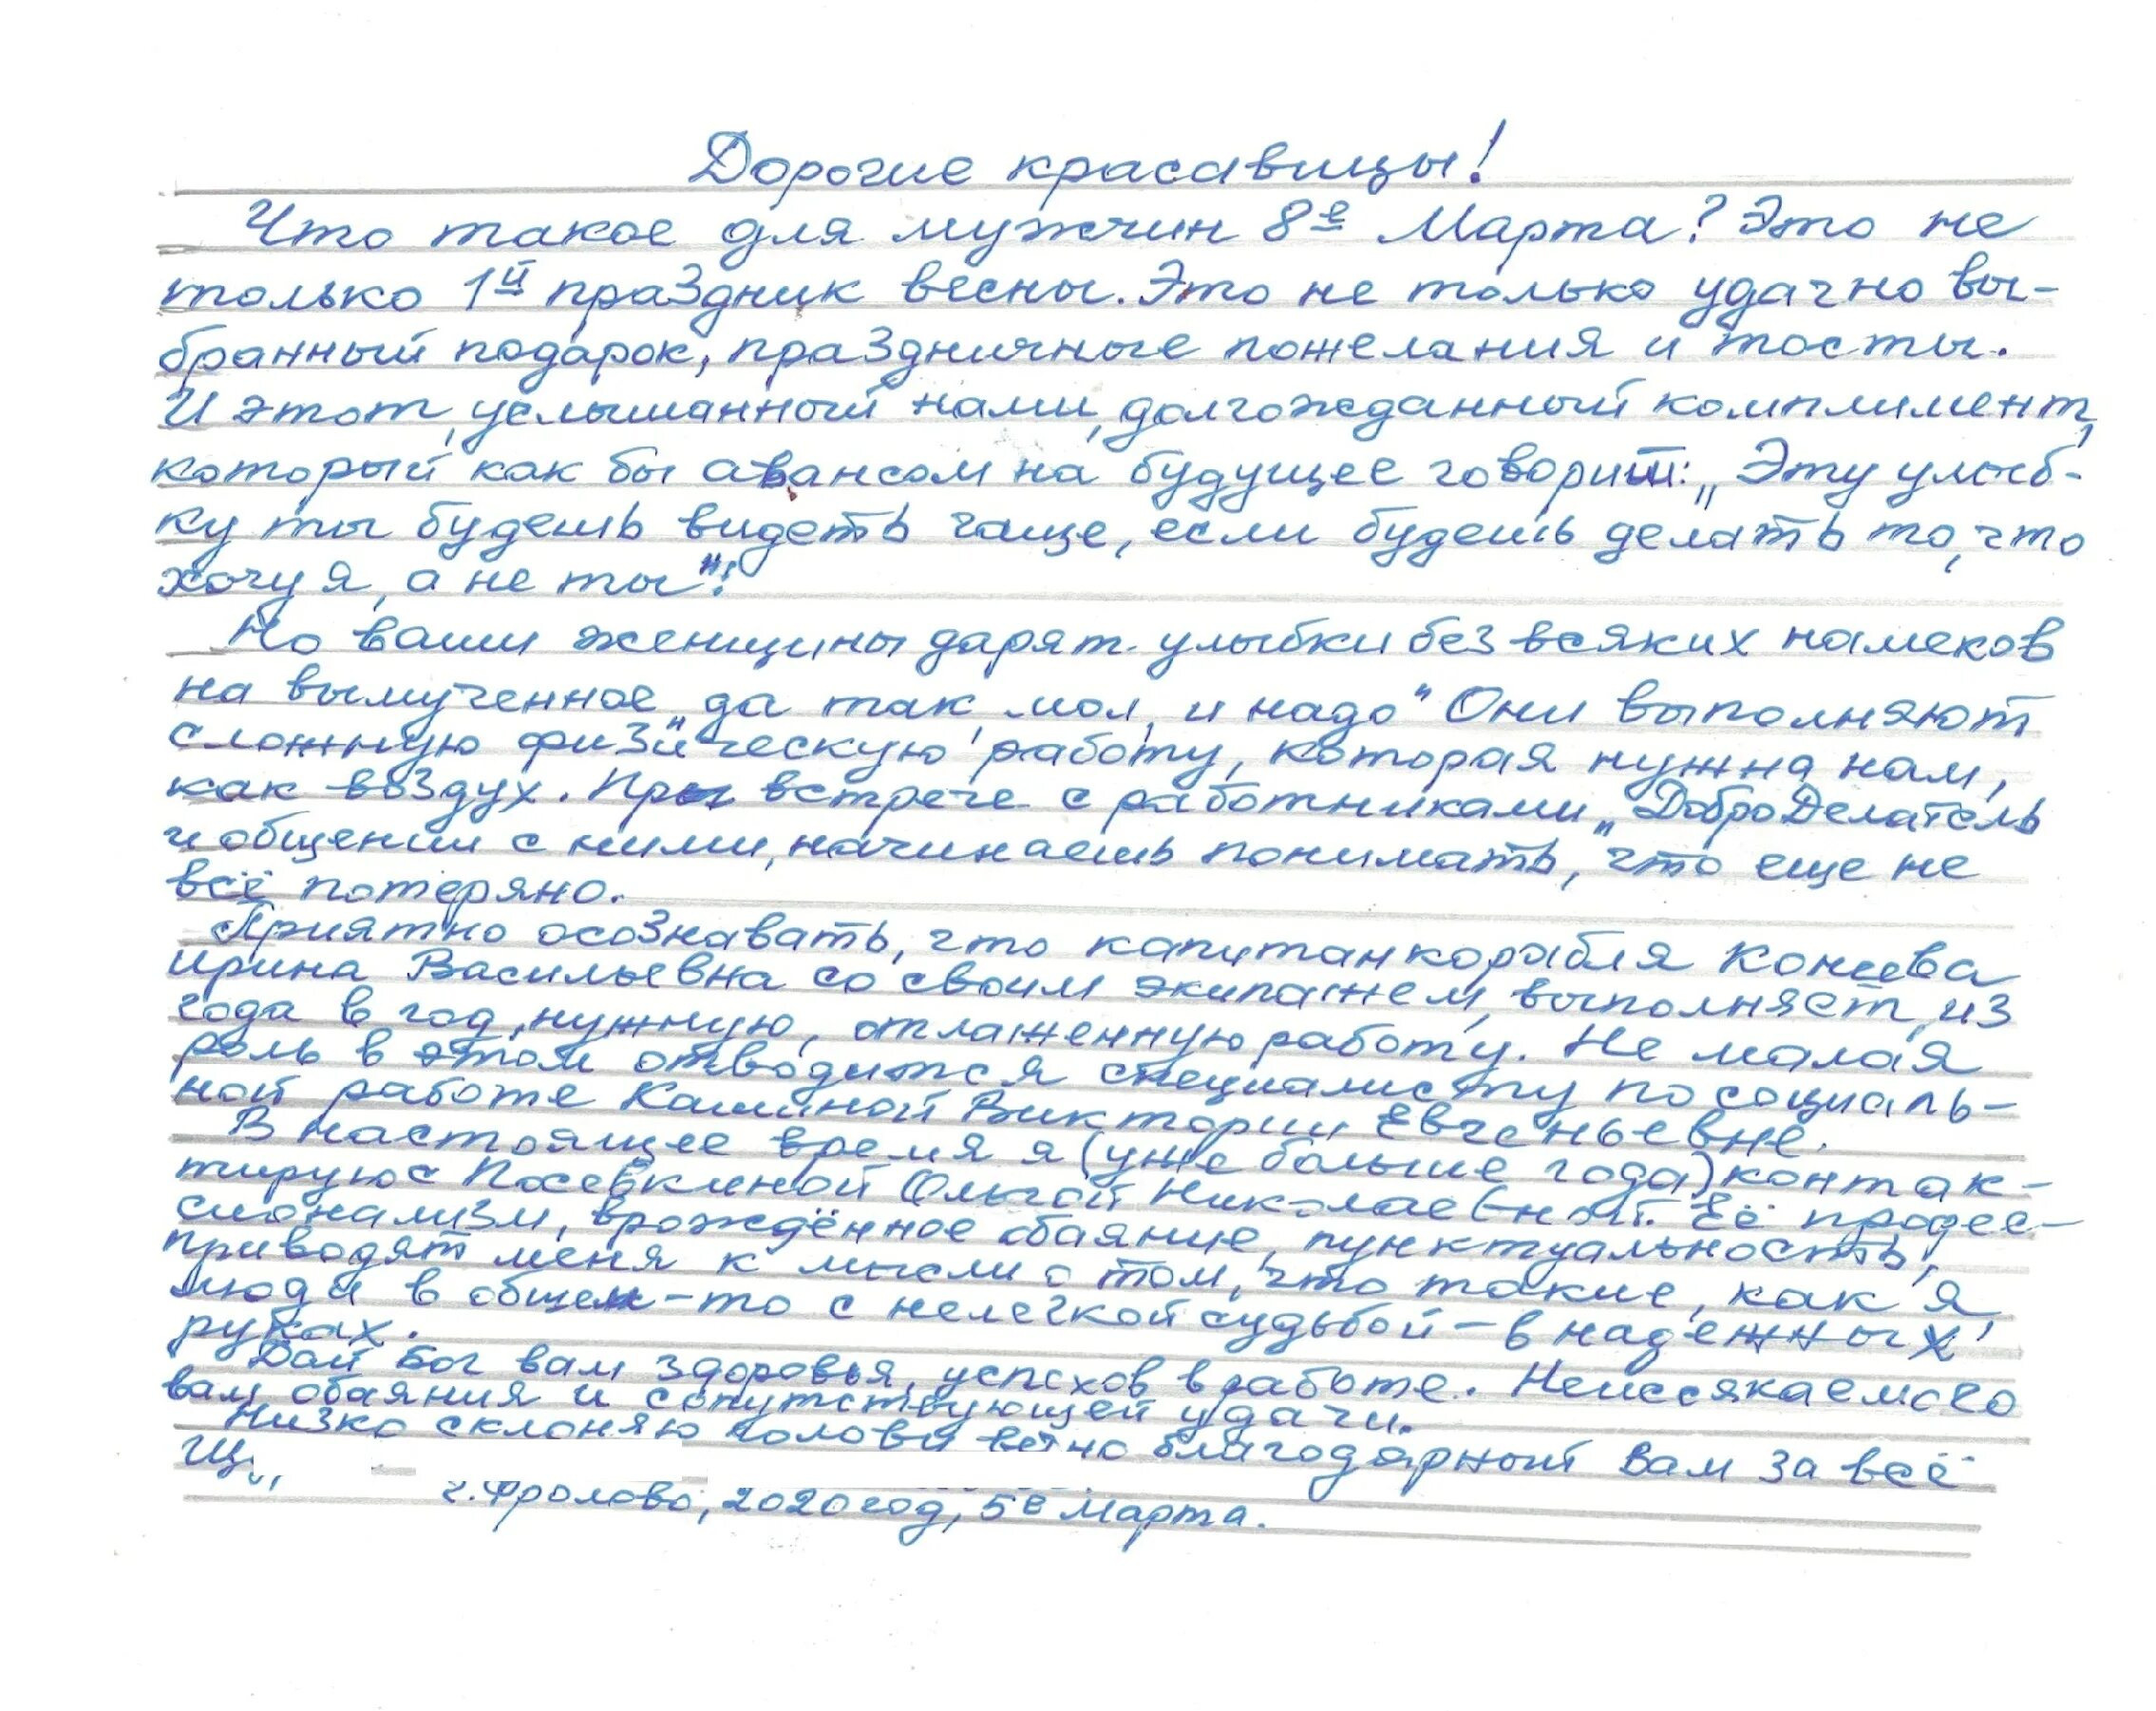 Дорогие красавицы!
Что такое для мужчин 8е Марта? Это не
только 1й праздник весны. Это не только удачно вы-
бранный подарок, праздничные пожелания и тосты.
И этот, услышанный нами, долгожданный комплимент,
который как бы авансом на будущее говорит: „Эту улыб-
ку ты будешь видеть чаще, если будешь делать то, что
хочу я, а не ты"!
Но ваши женщины дарят улыбки без всяких намеков
на вымученное „да так, мол, и надо" Они выполняют
сложную физическую работу, которая нужна нам,
как воздух. При встрече с работниками „ДоброДелатель
и общении с ними, начинаешь понимать, что еще не
всё потеряно.
Приятно осознавать, что капитан корабля Конева
Ирина Васильевна со своим экипажем, выполняет, из
года в год, нужную, отлаженную работу. Не малая
роль в этом отводится специалисту по социаль-
ной работе Калиной Виктории Евгеньевне.
В настоящее время я (уже больше года) контак-
тирую с Посевкиной Ольгой Николаевной. Её профес-
сионализм, врождённое обаяние, пунктуальность,
приводят меня к мысли о том, что такие, как я,
люди в общем-то с нелегкой судьбой – в надежных
руках.
Дай Бог вам здоровья, успехов в работе. Неиссякаемого
вам обаяния и сопутствующей удачи.
Низко склоняю голову вечно благодарный Вам за всё
Щ
г. Фролово, 2020 год, 5е Марта.